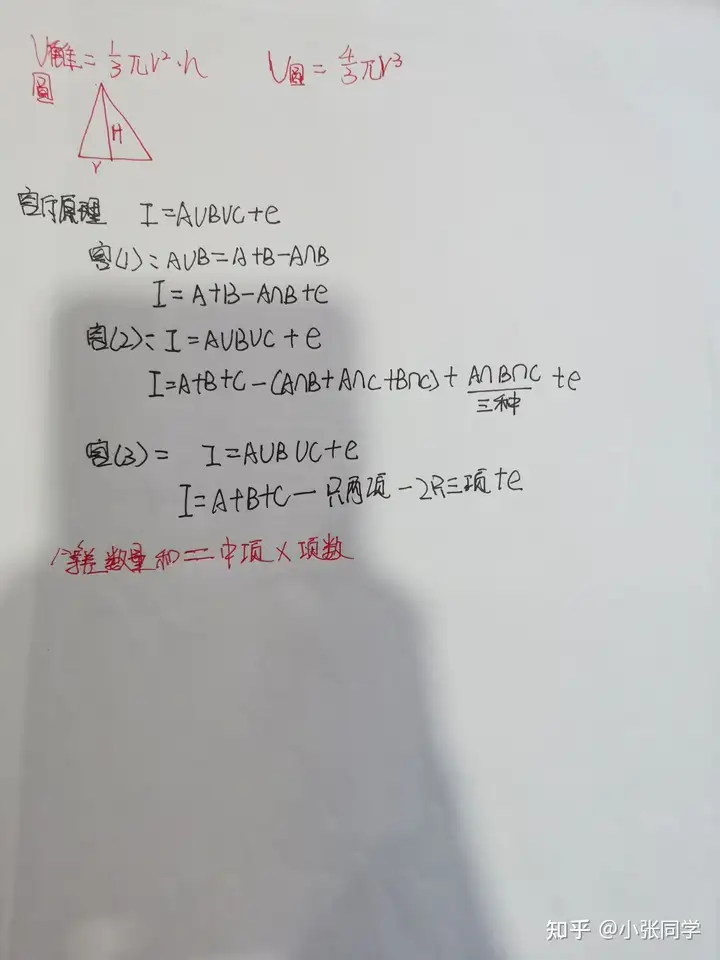 V锥 = 1/3 πr²·h
圆
V圆 = 4/3 πr³
H
r
容斥原理 I=A∪B∪C+e
容(1): A∪B=A+B-A∩B
I=A+B-A∩B+e
容(2): I=A∪B∪C+e
I=A+B+C-(A∩B+A∩C+B∩C)+A∩B∩C+e
三种
容(3)= I=A∪B∪C+e
I=A+B+C-只两项-2只三项+e
等差数量和=中项×项数
知乎 @小张同学